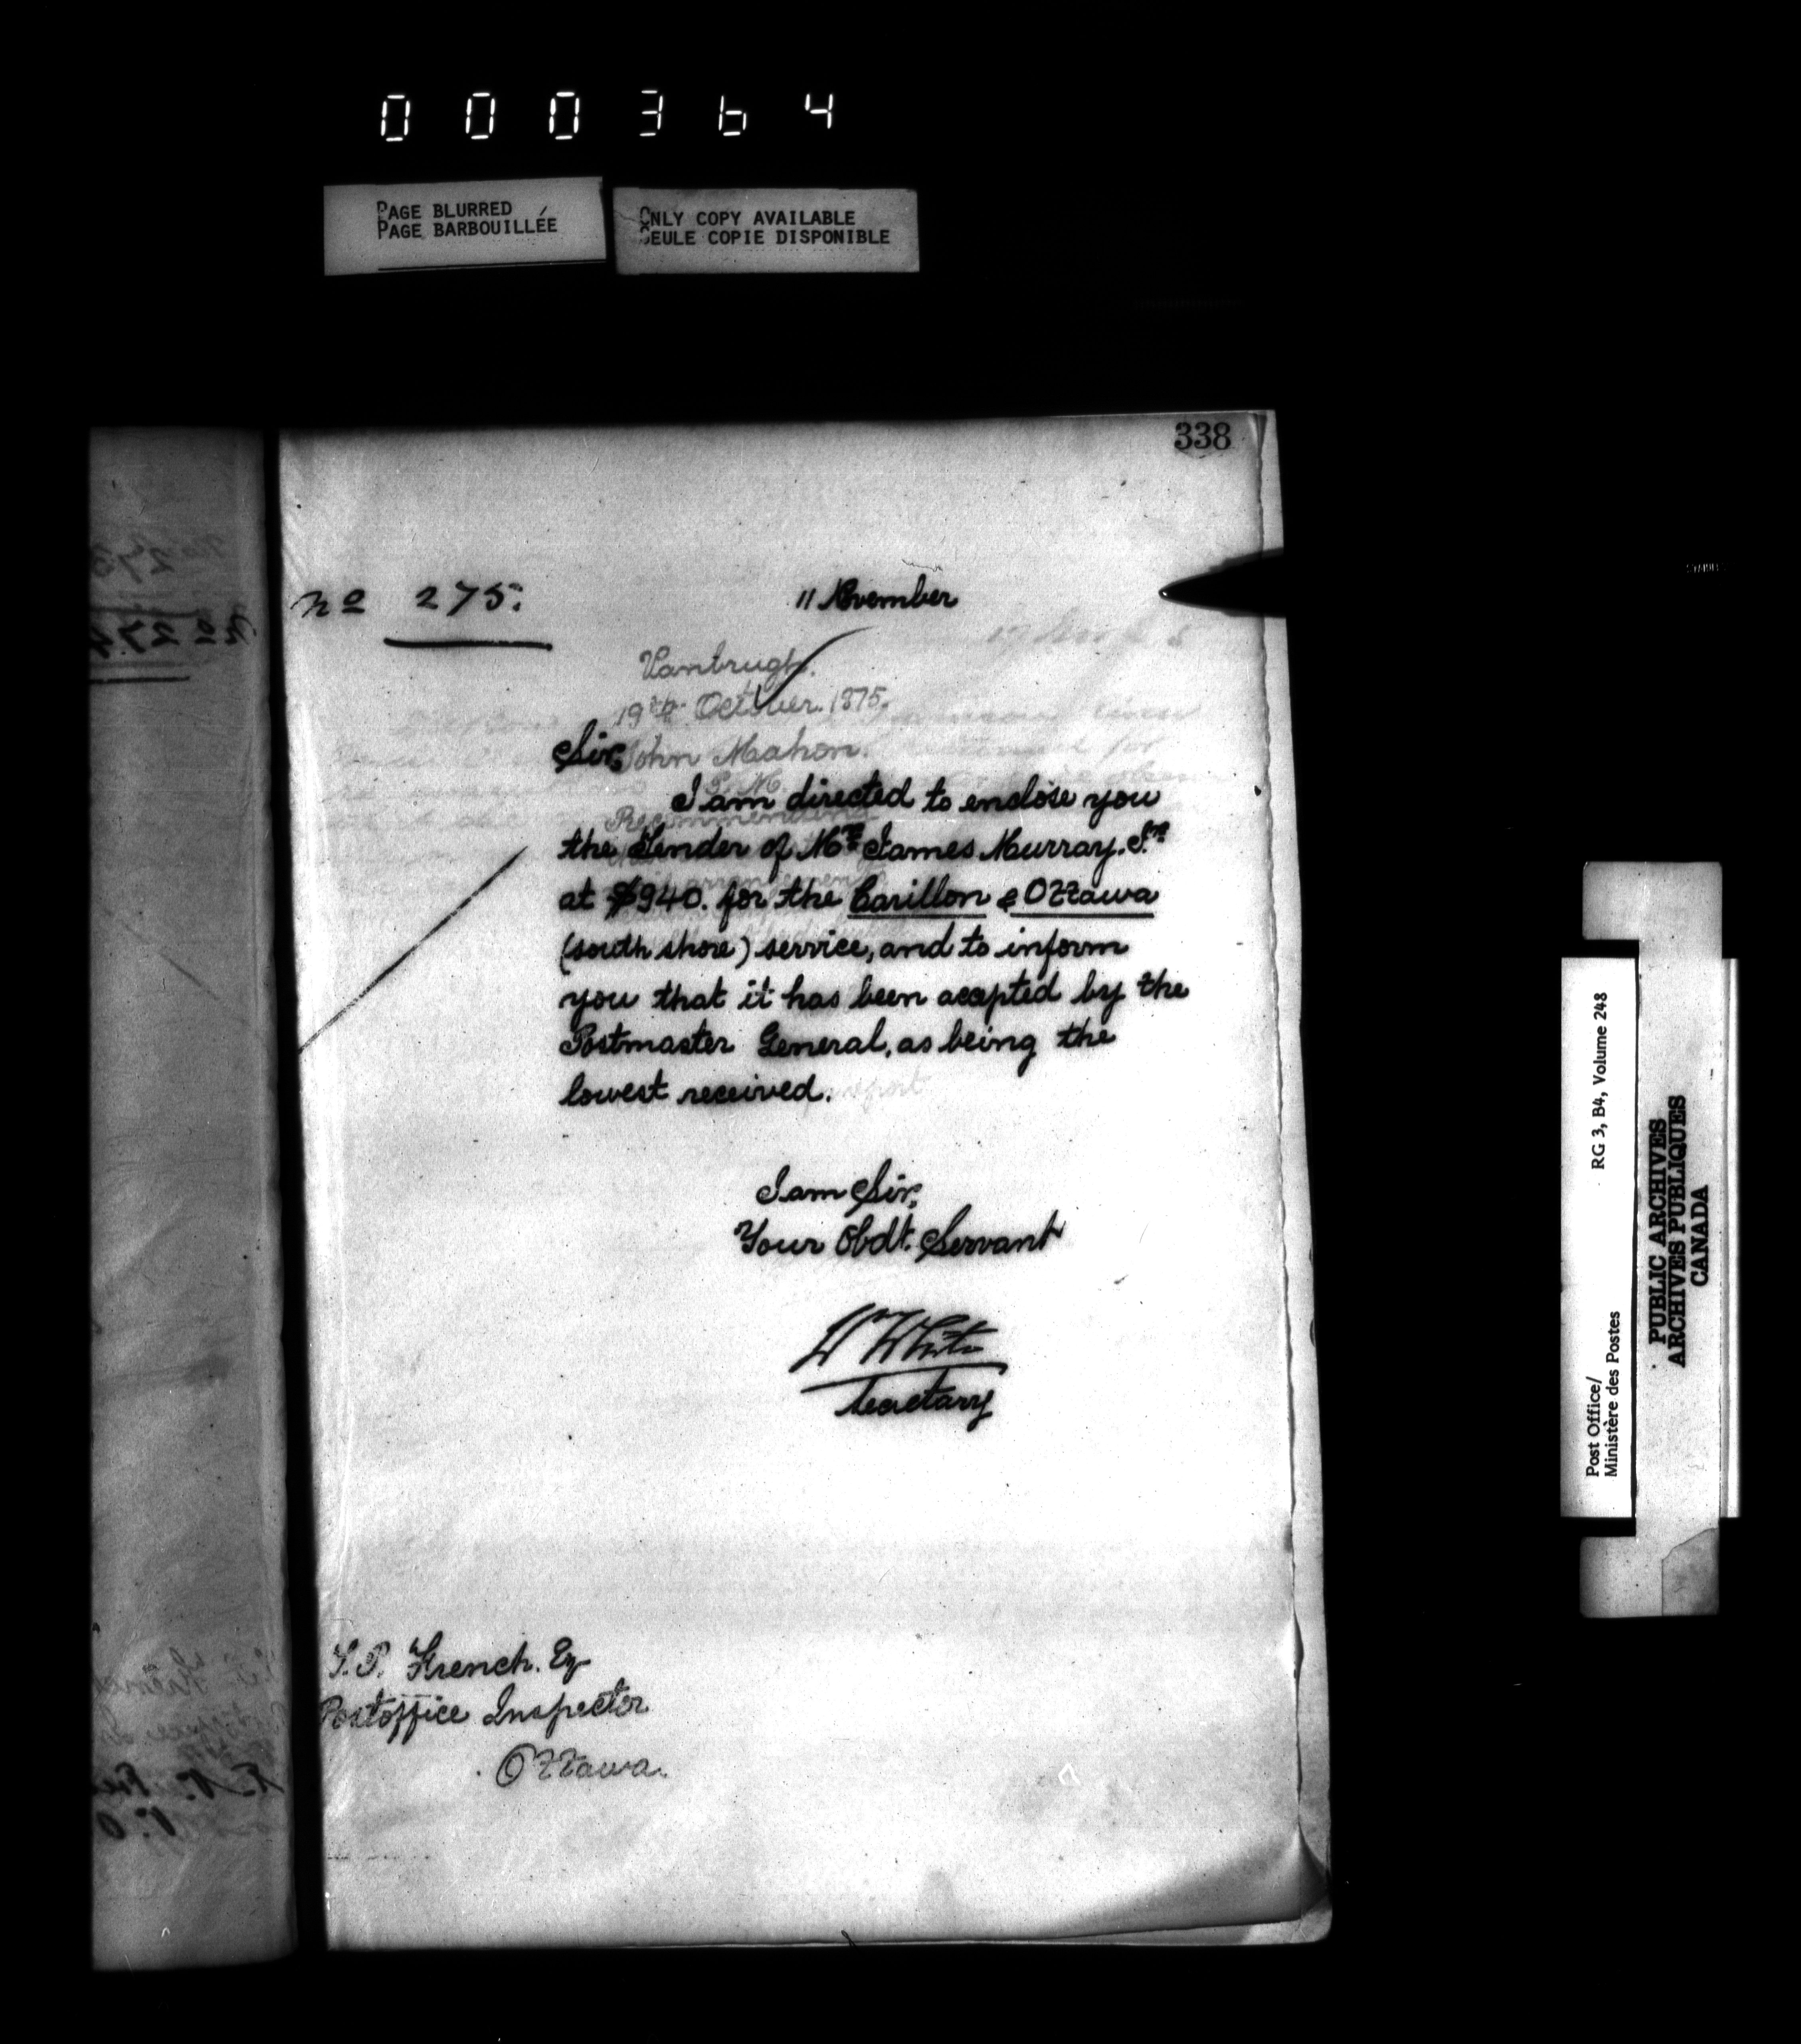 000364
PAGE BLURRED
PAGE BARBOUILLÉE
ONLY COPY AVAILABLE
SEULE COPIE DISPONIBLE
338
No 275.
11 November
Vanbrugh.
19th October. 1875.
John Mahon.
P. M.
Recommending
arrangement
Sir,
I am directed to enclose you
the Tender of Mr James Murray. Sr
at $940. for the Carillon & Ottawa
(south shore) service, and to inform
you that it has been accepted by the
Postmaster General, as being the
lowest received.
report
I am Sir,
Your Obdt. Servant
W White
Secretary
T. P. French. Esq
Postoffice Inspector
Ottawa.
Post Office/
Ministère des Postes
RG 3, B4, Volume 248
PUBLIC ARCHIVES
ARCHIVES PUBLIQUES
CANADA